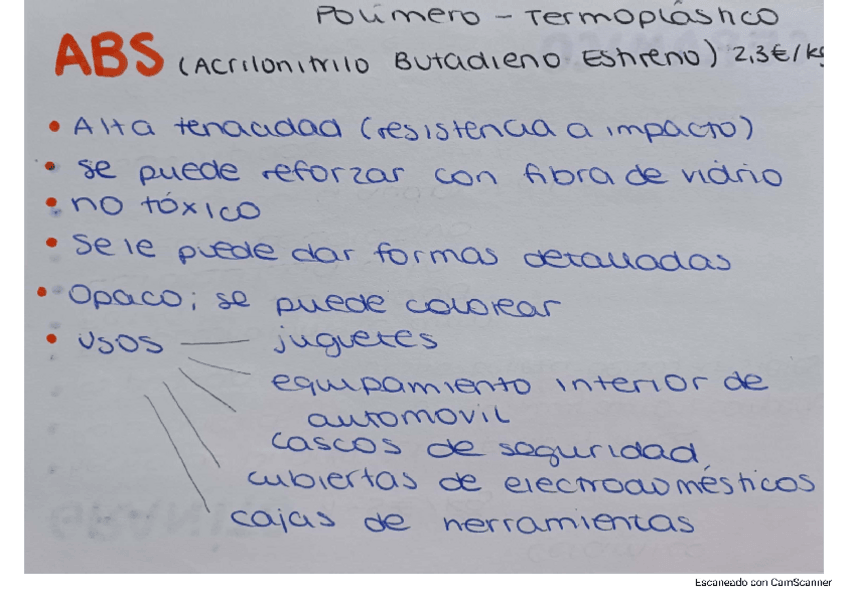 Polímero - Termoplástico
ABS (Acrilonitrilo Butadieno Estireno) 2,3€/kg
• Alta tenacidad (resistencia a impacto)
• se puede reforzar con fibra de vidrio
• no tóxico
• Se le puede dar formas detalladas
• Opaco; se puede colorear
• Usos — juguetes
equipamiento interior de
automovil
cascos de seguridad,
cubiertas de electrodomésticos
cajas de herramientas
Escaneado con CamScanner